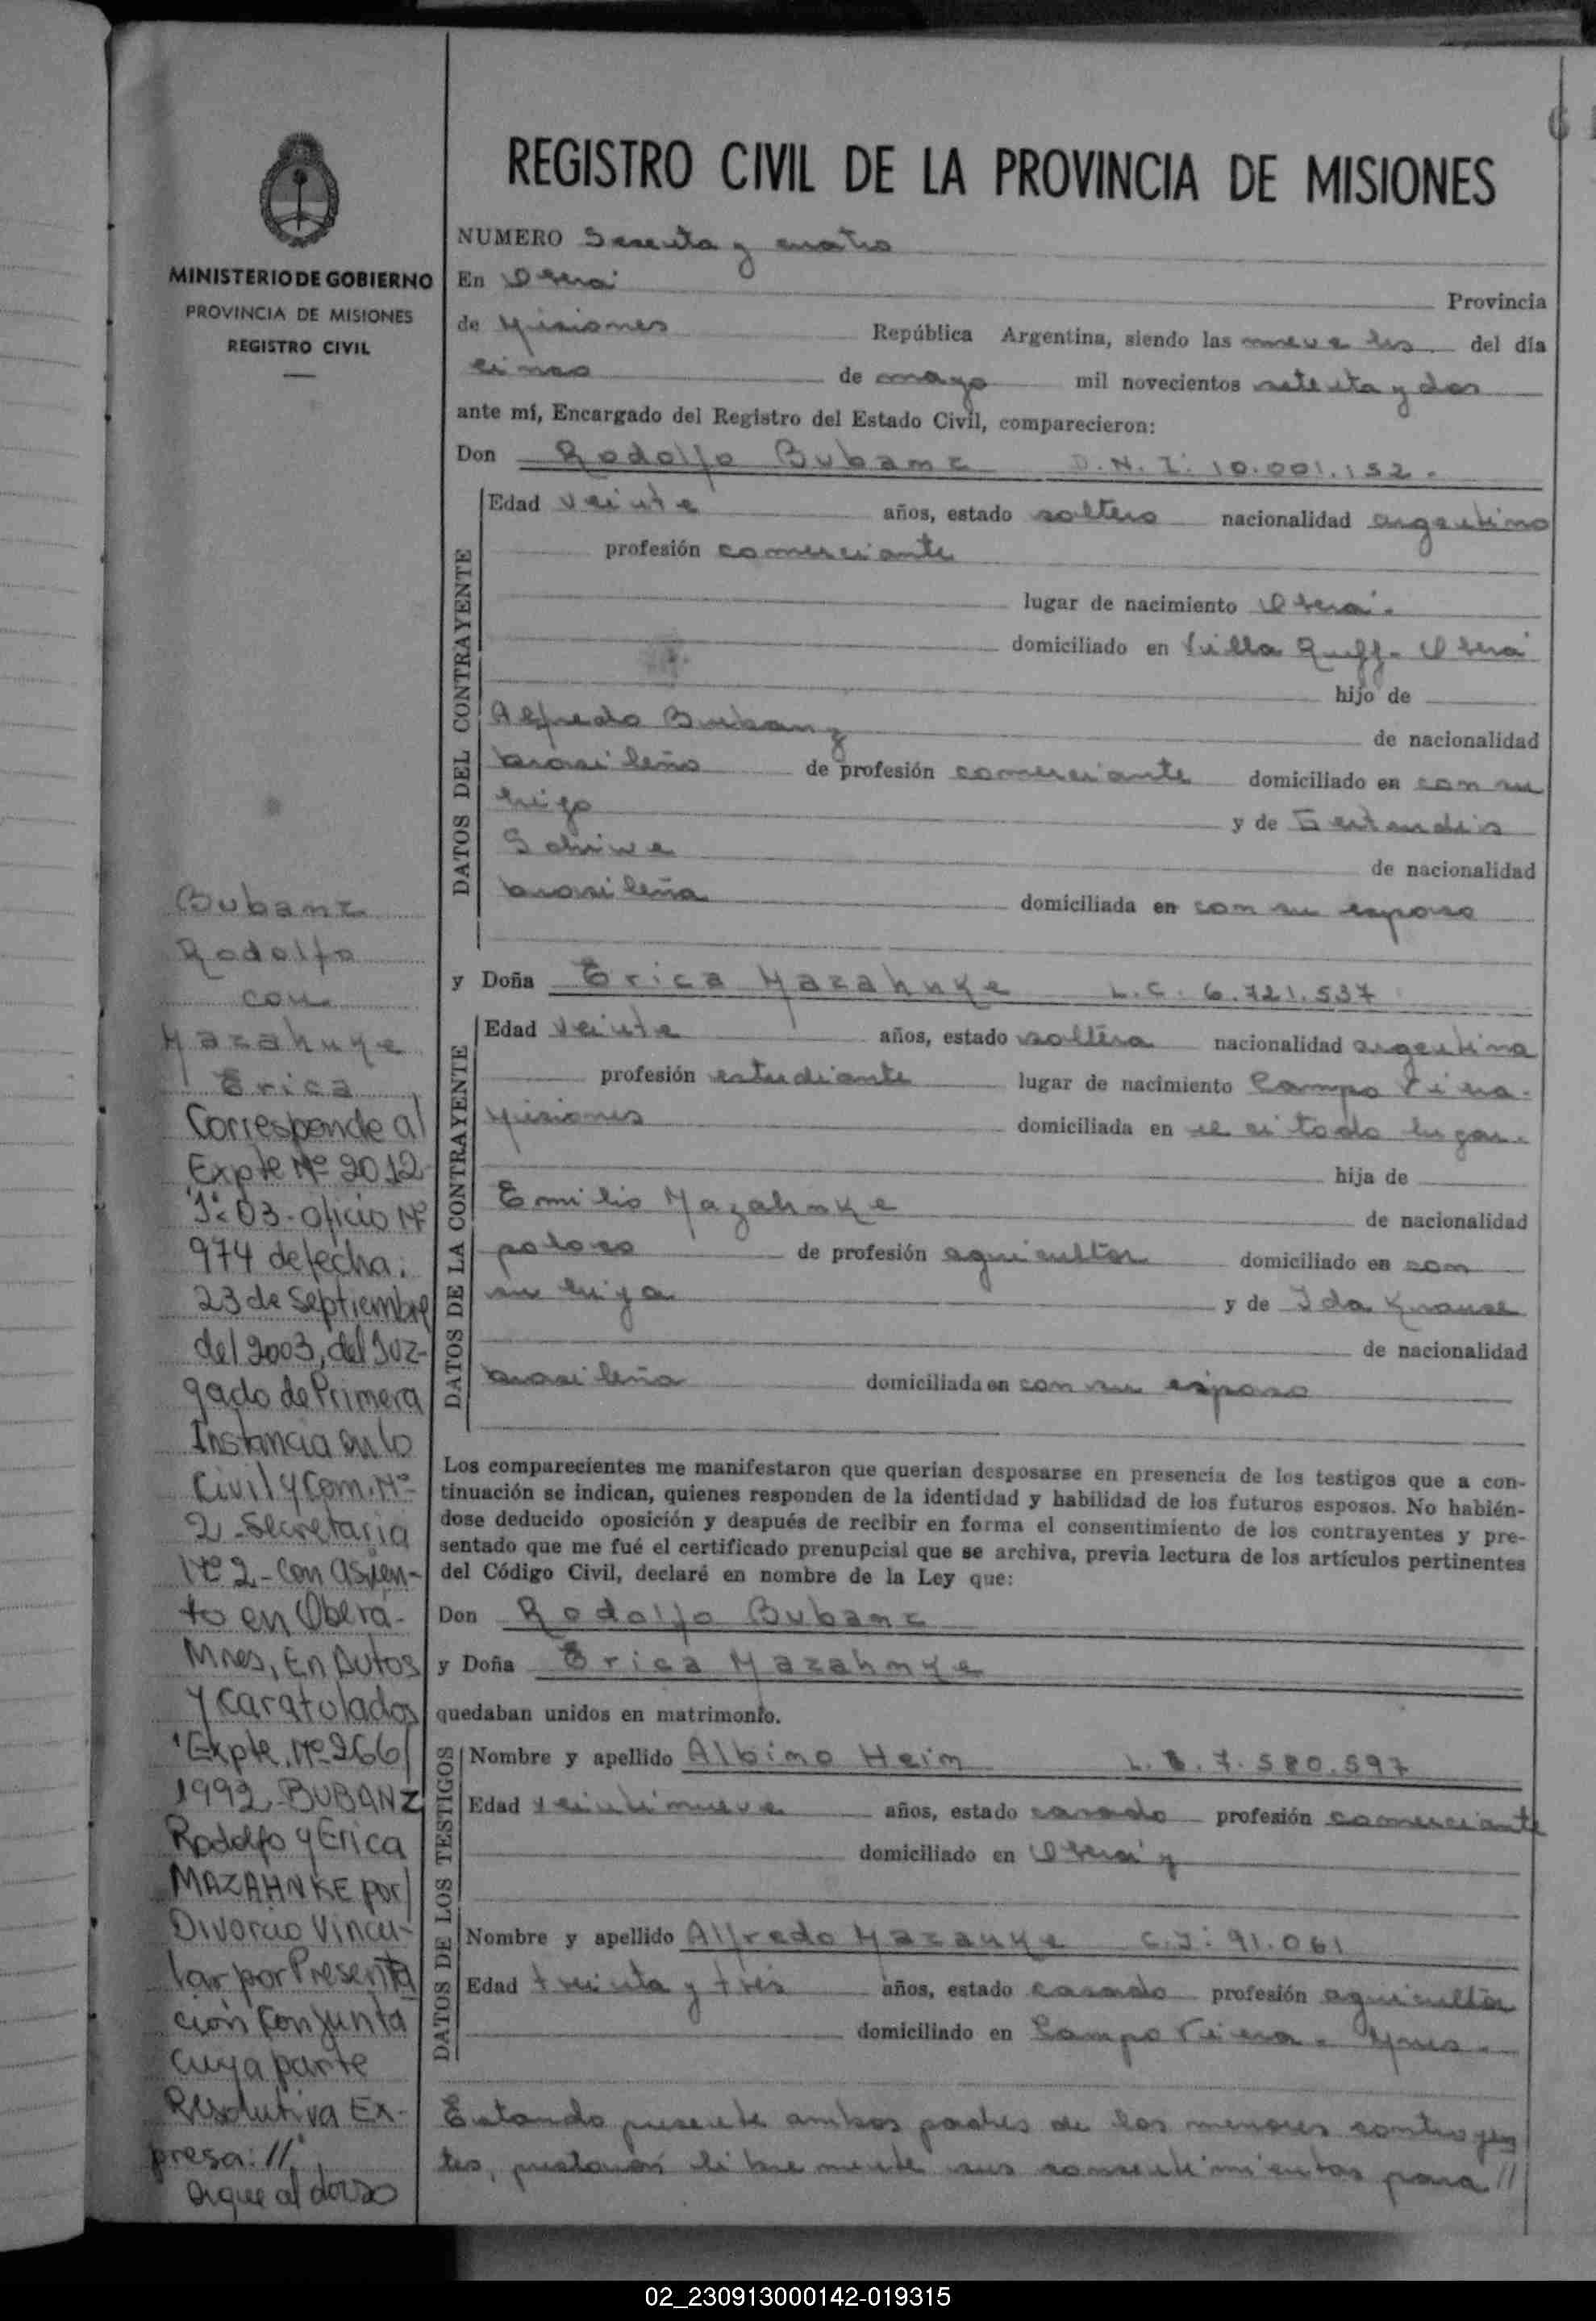 REGISTRO CIVIL DE LA PROVINCIA DE MISIONES
MINISTERIO DE GOBIERNO
PROVINCIA DE MISIONES
REGISTRO CIVIL
NUMERO Sesenta y cuatro
En Oberá Provincia
de Misiones República Argentina, siendo las nueve hs. del día
cinco de mayo mil novecientos setenta y dos
ante mí, Encargado del Registro del Estado Civil, comparecieron:
Don Rodolfo Bubanz D.N.I. 10.001.152.
DATOS DEL CONTRAYENTE
Edad veinte años, estado soltero nacionalidad argentino
profesión comerciante
lugar de nacimiento Oberá.
domiciliado en Villa Ruff. Oberá
hijo de
Alfredo Bubanz de nacionalidad
brasileño de profesión comerciante domiciliado en con su
hijo y de
de nacionalidad
brasileña domiciliada en con su esposo
y Doña Erica Mazahnke L.C. 6.721.537
DATOS DE LA CONTRAYENTE
Edad veinte años, estado soltera nacionalidad argentina
profesión estudiante lugar de nacimiento Campo Viera.
Misiones domiciliada en el citado lugar.
hija de
Emilio Mazahnke de nacionalidad
polaco de profesión agricultor domiciliado en con
su hija y de Ida Krause
de nacionalidad
brasileña domiciliada en con su esposo
Los comparecientes me manifestaron que querían desposarse en presencia de los testigos que a con-
tinuación se indican, quienes responden de la identidad y habilidad de los futuros esposos. No habién-
dose deducido oposición y después de recibir en forma el consentimiento de los contrayentes y pre-
sentado que me fué el certificado prenupcial que se archiva, previa lectura de los artículos pertinentes
del Código Civil, declaré en nombre de la Ley que:
Don Rodolfo Bubanz
y Doña Erica Mazahnke
quedaban unidos en matrimonio.
DATOS DE LOS TESTIGOS
Nombre y apellido Albino Hein L.E. 7.580.597
Edad veintinueve años, estado casado profesión comerciante
domiciliado en Oberá y
Nombre y apellido Alfredo Mazanke C.I: 91.061
Edad treinta y tres años, estado casado profesión agricultor
domiciliado en Campo Viera. Mnes.
Estando presente ambos padres de los menores contrayen
tes, prestaron libremente sus consentimientos para //
Bubanz
Rodolfo
con
Mazahnke
Erica
Corresponde al
Expte Nº 2012
03- oficio Nº
974 de fecha:
23 de Septiembre
del 2003, del Juz-
gado de Primera
Instancia en lo
Civil y Com. Nº
2- Secretaria
Nº 2- con asien-
to en Oberá-
Mnes, En Autos
y caratulados
"Expte. Nº 266/
1992- BUBANZ
Rodolfo y Erica
MAZAHNKE por/
Divorcio Vincu-
lar por Presenta
ción Conjunta
cuya parte
Resolutiva Ex-
presa: //
sigue al dorso
02_230913000142-019315